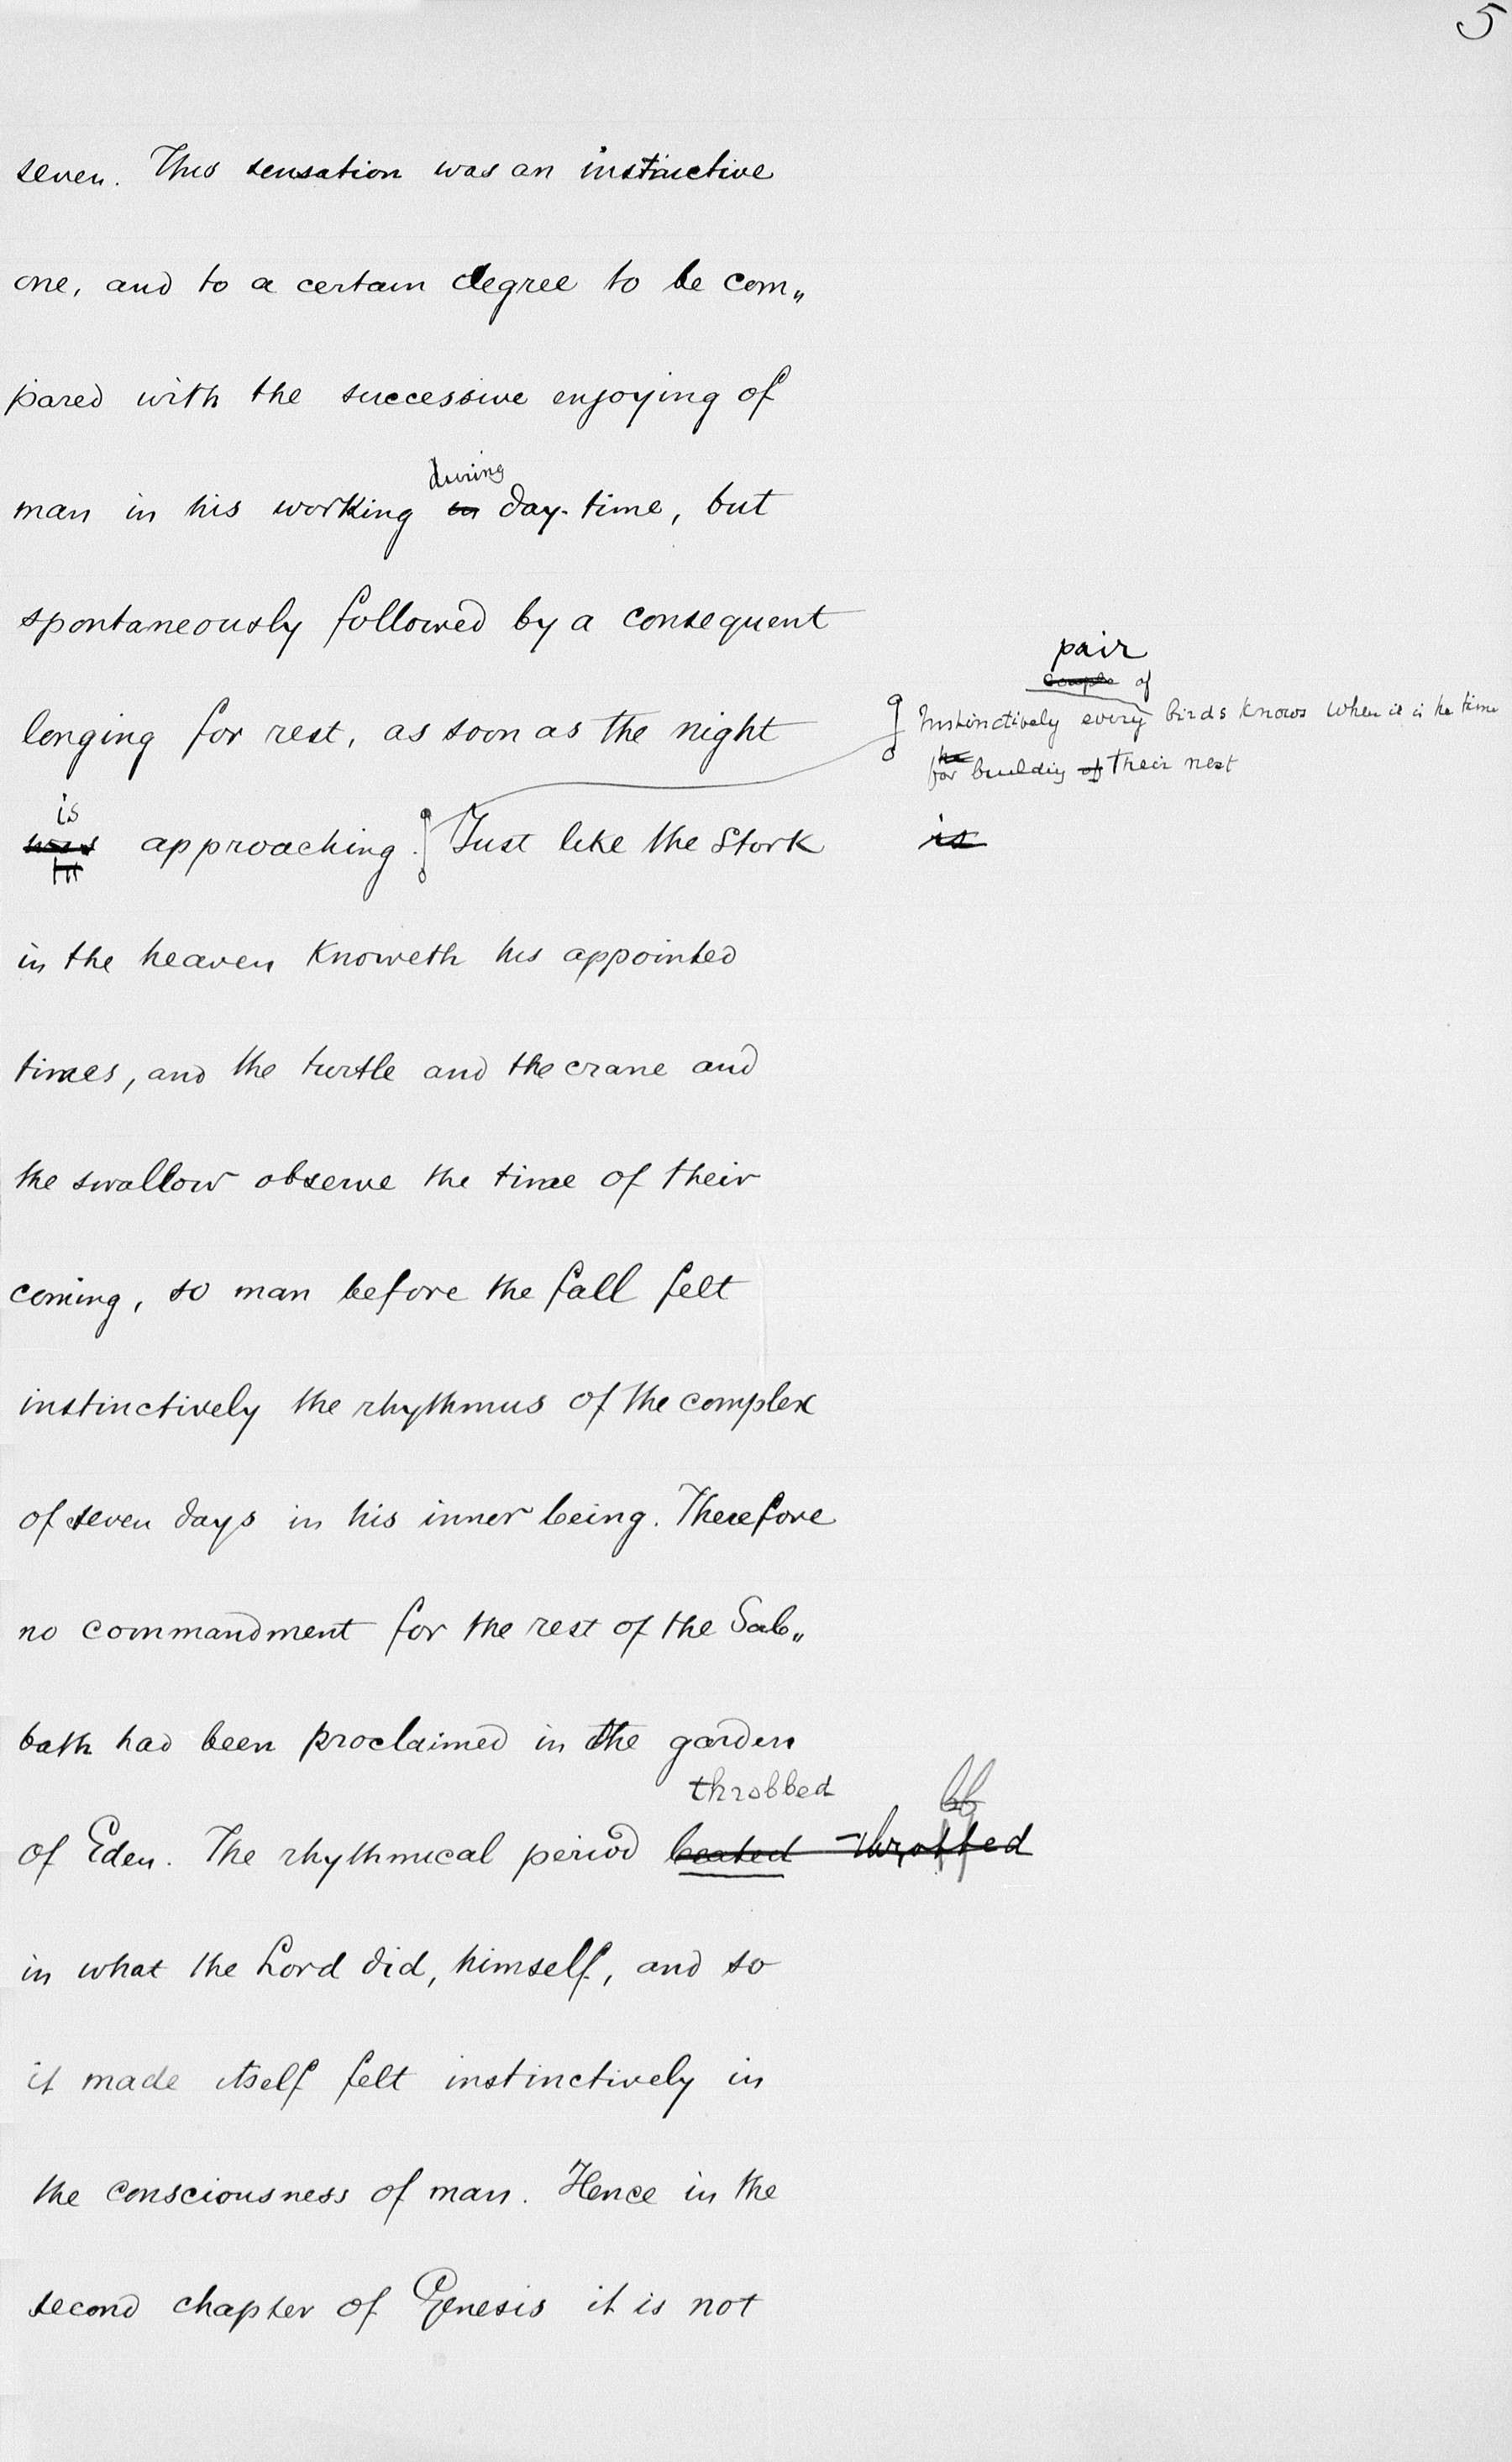 5
seven. This sensation was an instinctive
one, and to a certain degree to be com„
pared with the successive enjoying of
during
man in his working in day-time, but
spontaneously followed by a consequent
longing for rest, as soon as the night
pair
couple of
Instinctively every birds knows when it is the time
for building of their nest
is
was approaching. Just like the Stork
is
in the heaven knoweth his appointed
times, and the turtle and the crane and
the swallow observe the time of their
coming, so man before the fall felt
instinctively the rhythmus of the complex
of seven days in his inner being. Therefore
no commandment for the rest of the Sab„
bath had been proclaimed in the garden
throbbed bb
of Eden. The rhythmical period beated throffed
in what the Lord did, himself, and so
it made itself felt instinctively in
the consciousness of man. Hence in the
second chapter of Genesis it is not